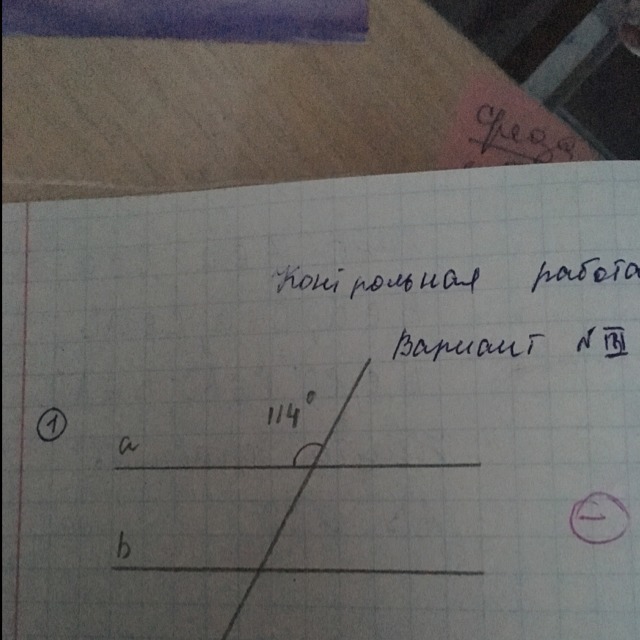 среда
Контрольная работа
Вариант № III
114°
①
a
b